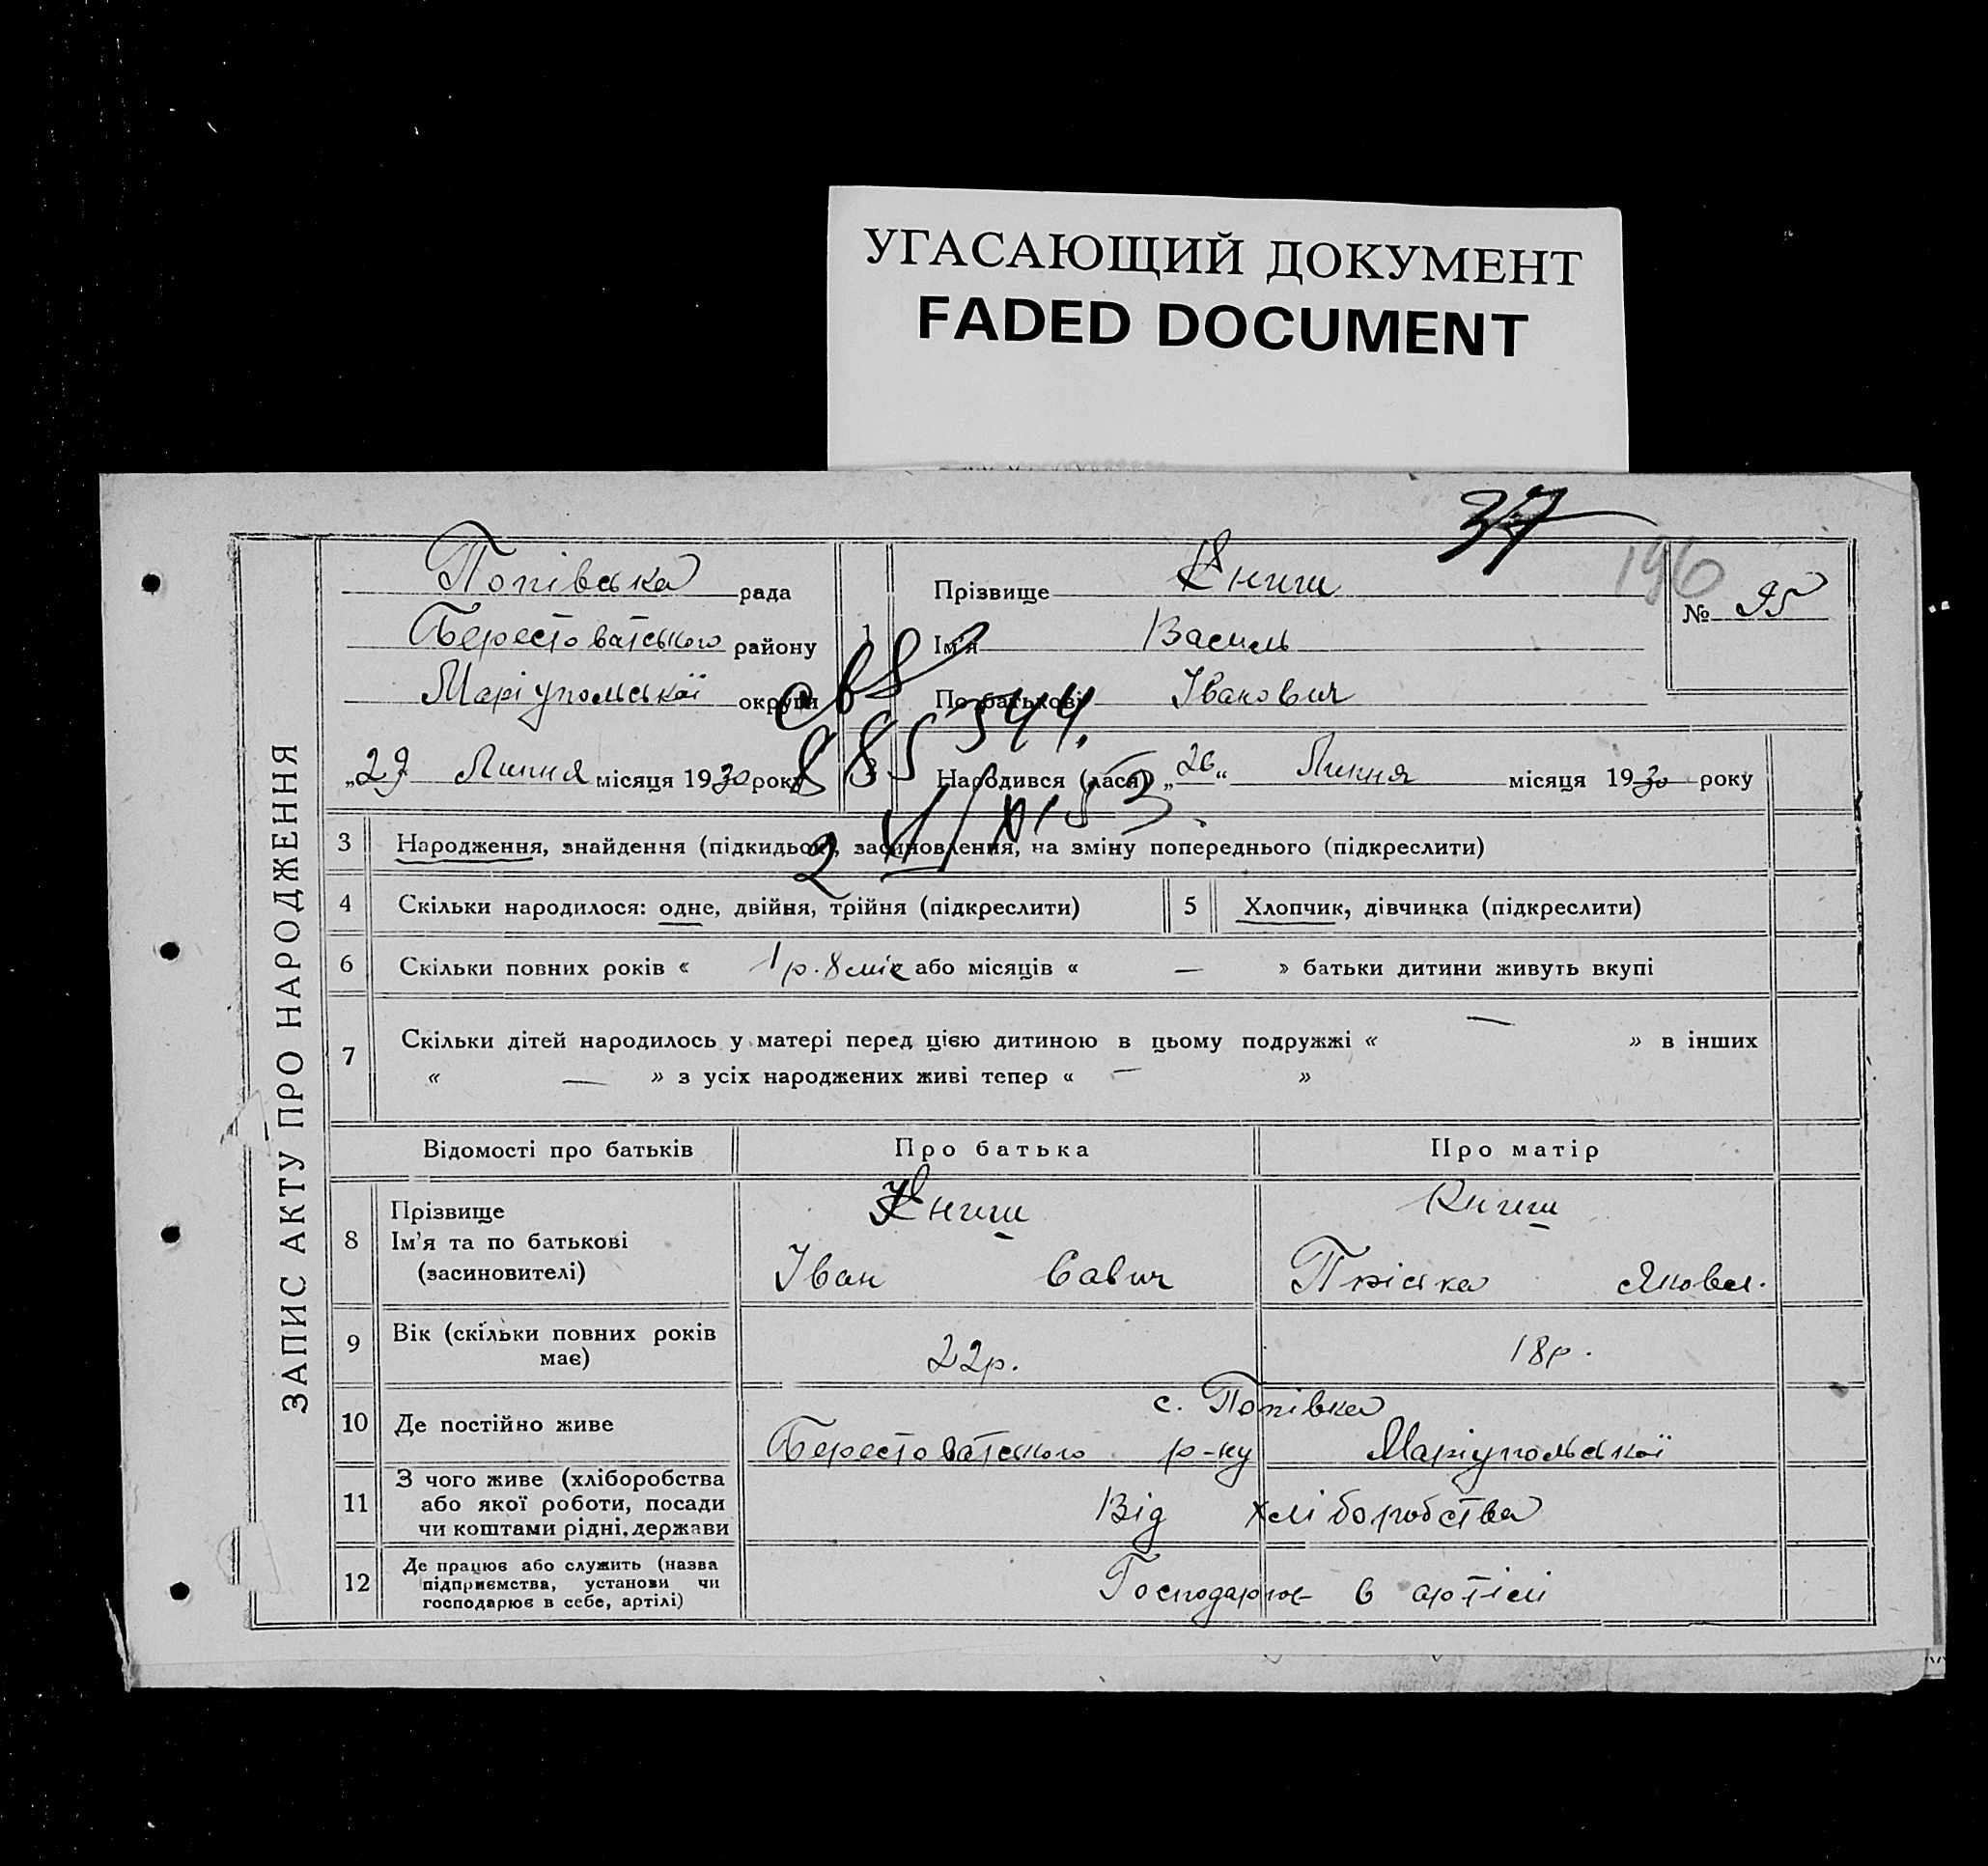 УГАСАЮЩИЙ ДОКУМЕНТ
FADED DOCUMENT
37
196
ЗАПИС АКТУ ПРО НАРОДЖЕННЯ
Попівська рада
Берестоватського району
Маріупольської округи
„29 Липня місяця 1930 року
1
Прізвище Книш
Ім'я Василь
По батькові Іванович
№ 95
св
885344
2 VII 53
2 Народився (лася) „26“ Липня місяця 1930 року
3 Народження, знайдення (підкидьок), засиновлення, на зміну попереднього (підкреслити)
4 Скільки народилося: одне, двійня, трійня (підкреслити)
5 Хлопчик, дівчинка (підкреслити)
6 Скільки повних років « 1 р. 8 міс або місяців « — » батьки дитини живуть вкупі
7 Скільки дітей народилось у матері перед цією дитиною в цьому подружжі « — » в інших
« — » з усіх народжених живі тепер « — »
Відомості про батьків
Про батька
Про матір
8 Прізвище
Ім'я та по батькові
(засиновителі)
Книш
Іван Савич
Книш
Пріська Яковл.
9 Вік (скільки повних років
має)
22р.
18р.
10 Де постійно живе
с. Попівка
Берестоватського р-ну Маріупольської
11 З чого живе (хліборобства
або якої роботи, посади
чи коштами рідні, держави
Від хліборобства
12 Де працює або служить (назва
підприємства, установи чи
господарює в себе, артілі)
Господарює в артілі